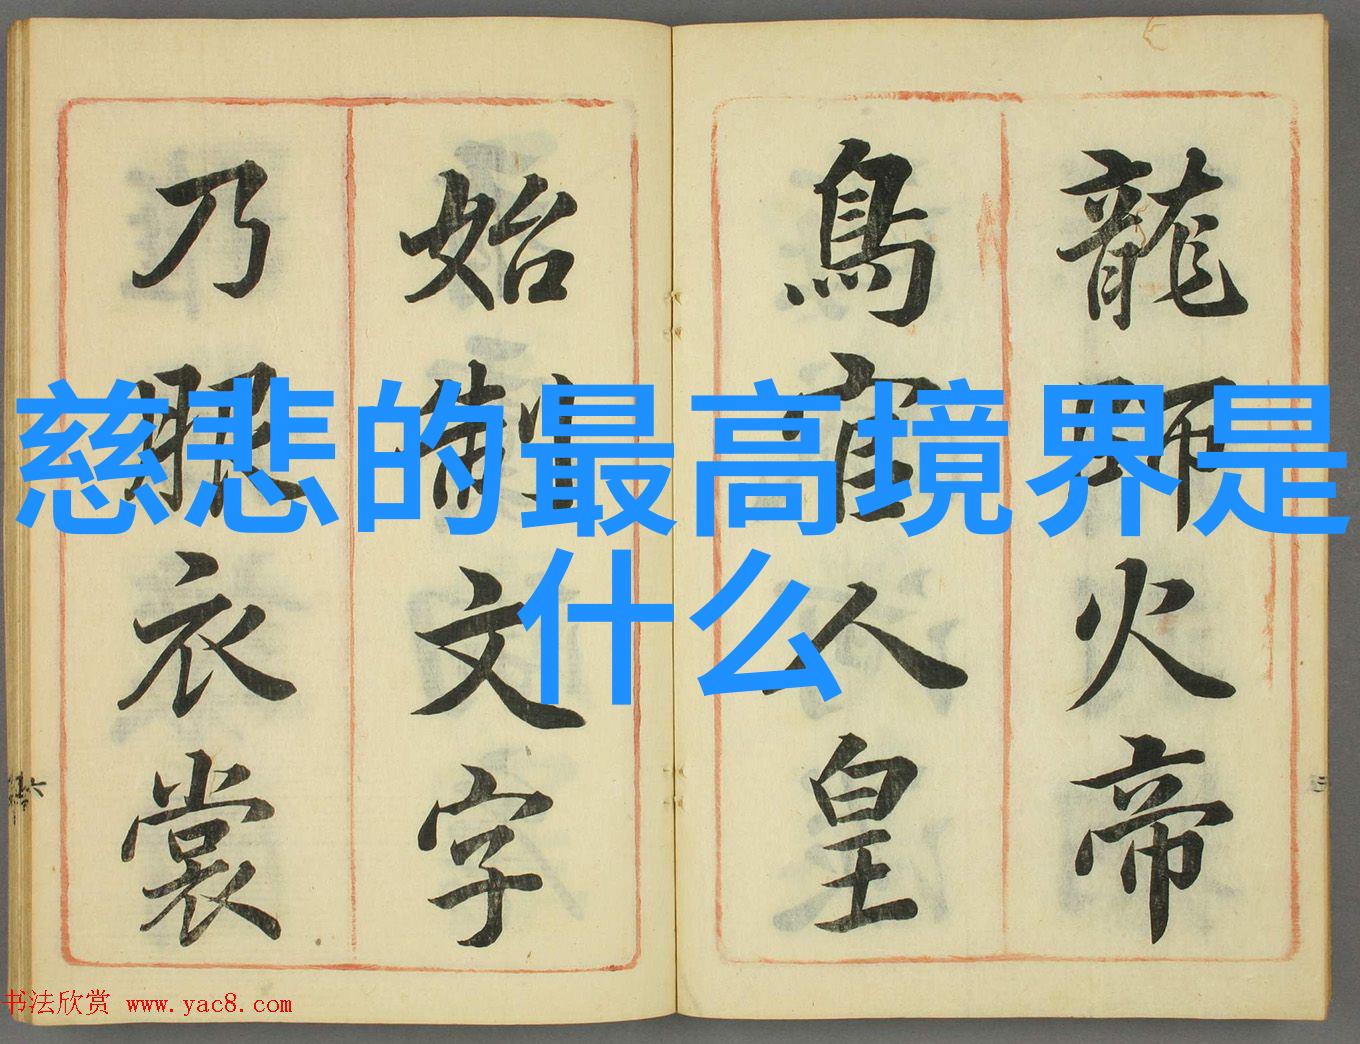 慈悲的最高境界是
什么
龍師火帝
鳥官人皇
始制文字
乃服衣裳
书法欣赏 www.yac8.com